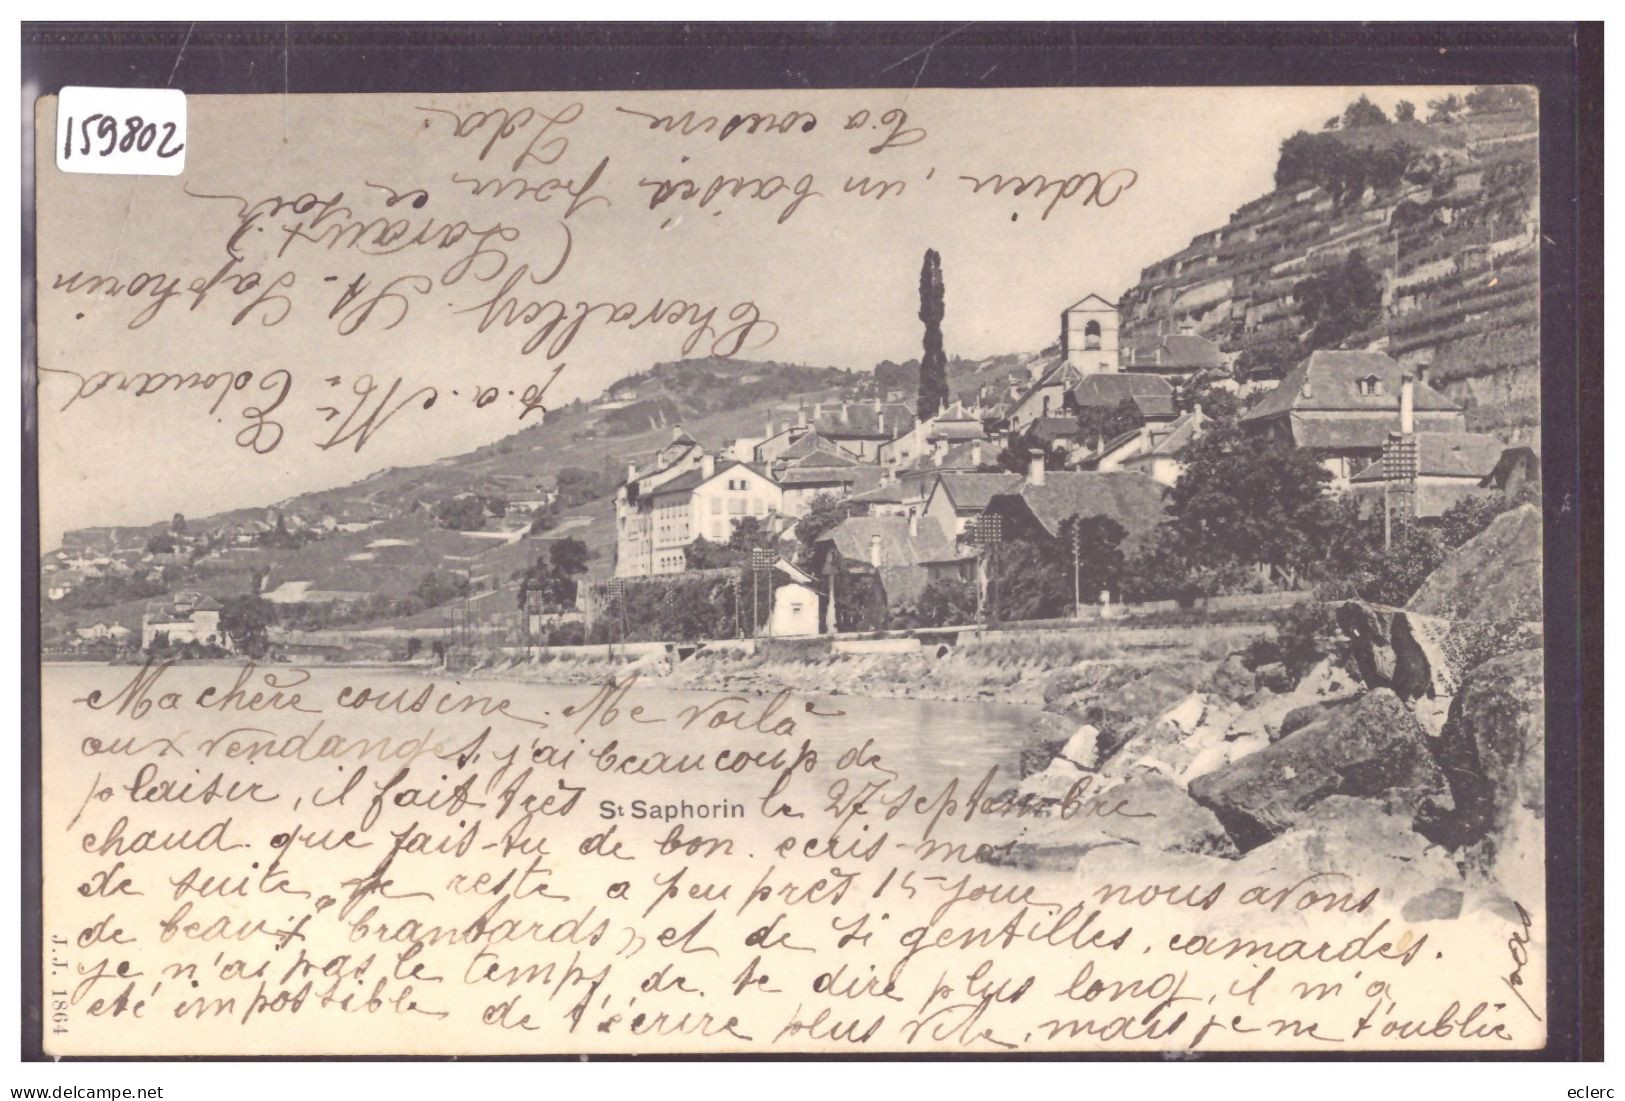 159802
Ma chère cousine. Me voilà
aux vendanges, j'ai beaucoup de
plaisir, il fait très St Saphorin le 27 septembre
chaud. que fais-tu de bon. ecris-moi
de suite, je reste a peu près 15 jour, nous avons
de beaux "brantards" et de si gentilles, camardes.
je n'ai pas le temps de te dire plus long, il m'a
eté impossible de t'écrire plus vite, mais je ne t'oublie
pas
J.J. 1864
Edouard
p.a. Mr
Chevalley. St. Saphorin
(Lavaux)
Adieu, un baisés pour ce soir
Ta cousine Ida.
eclerc